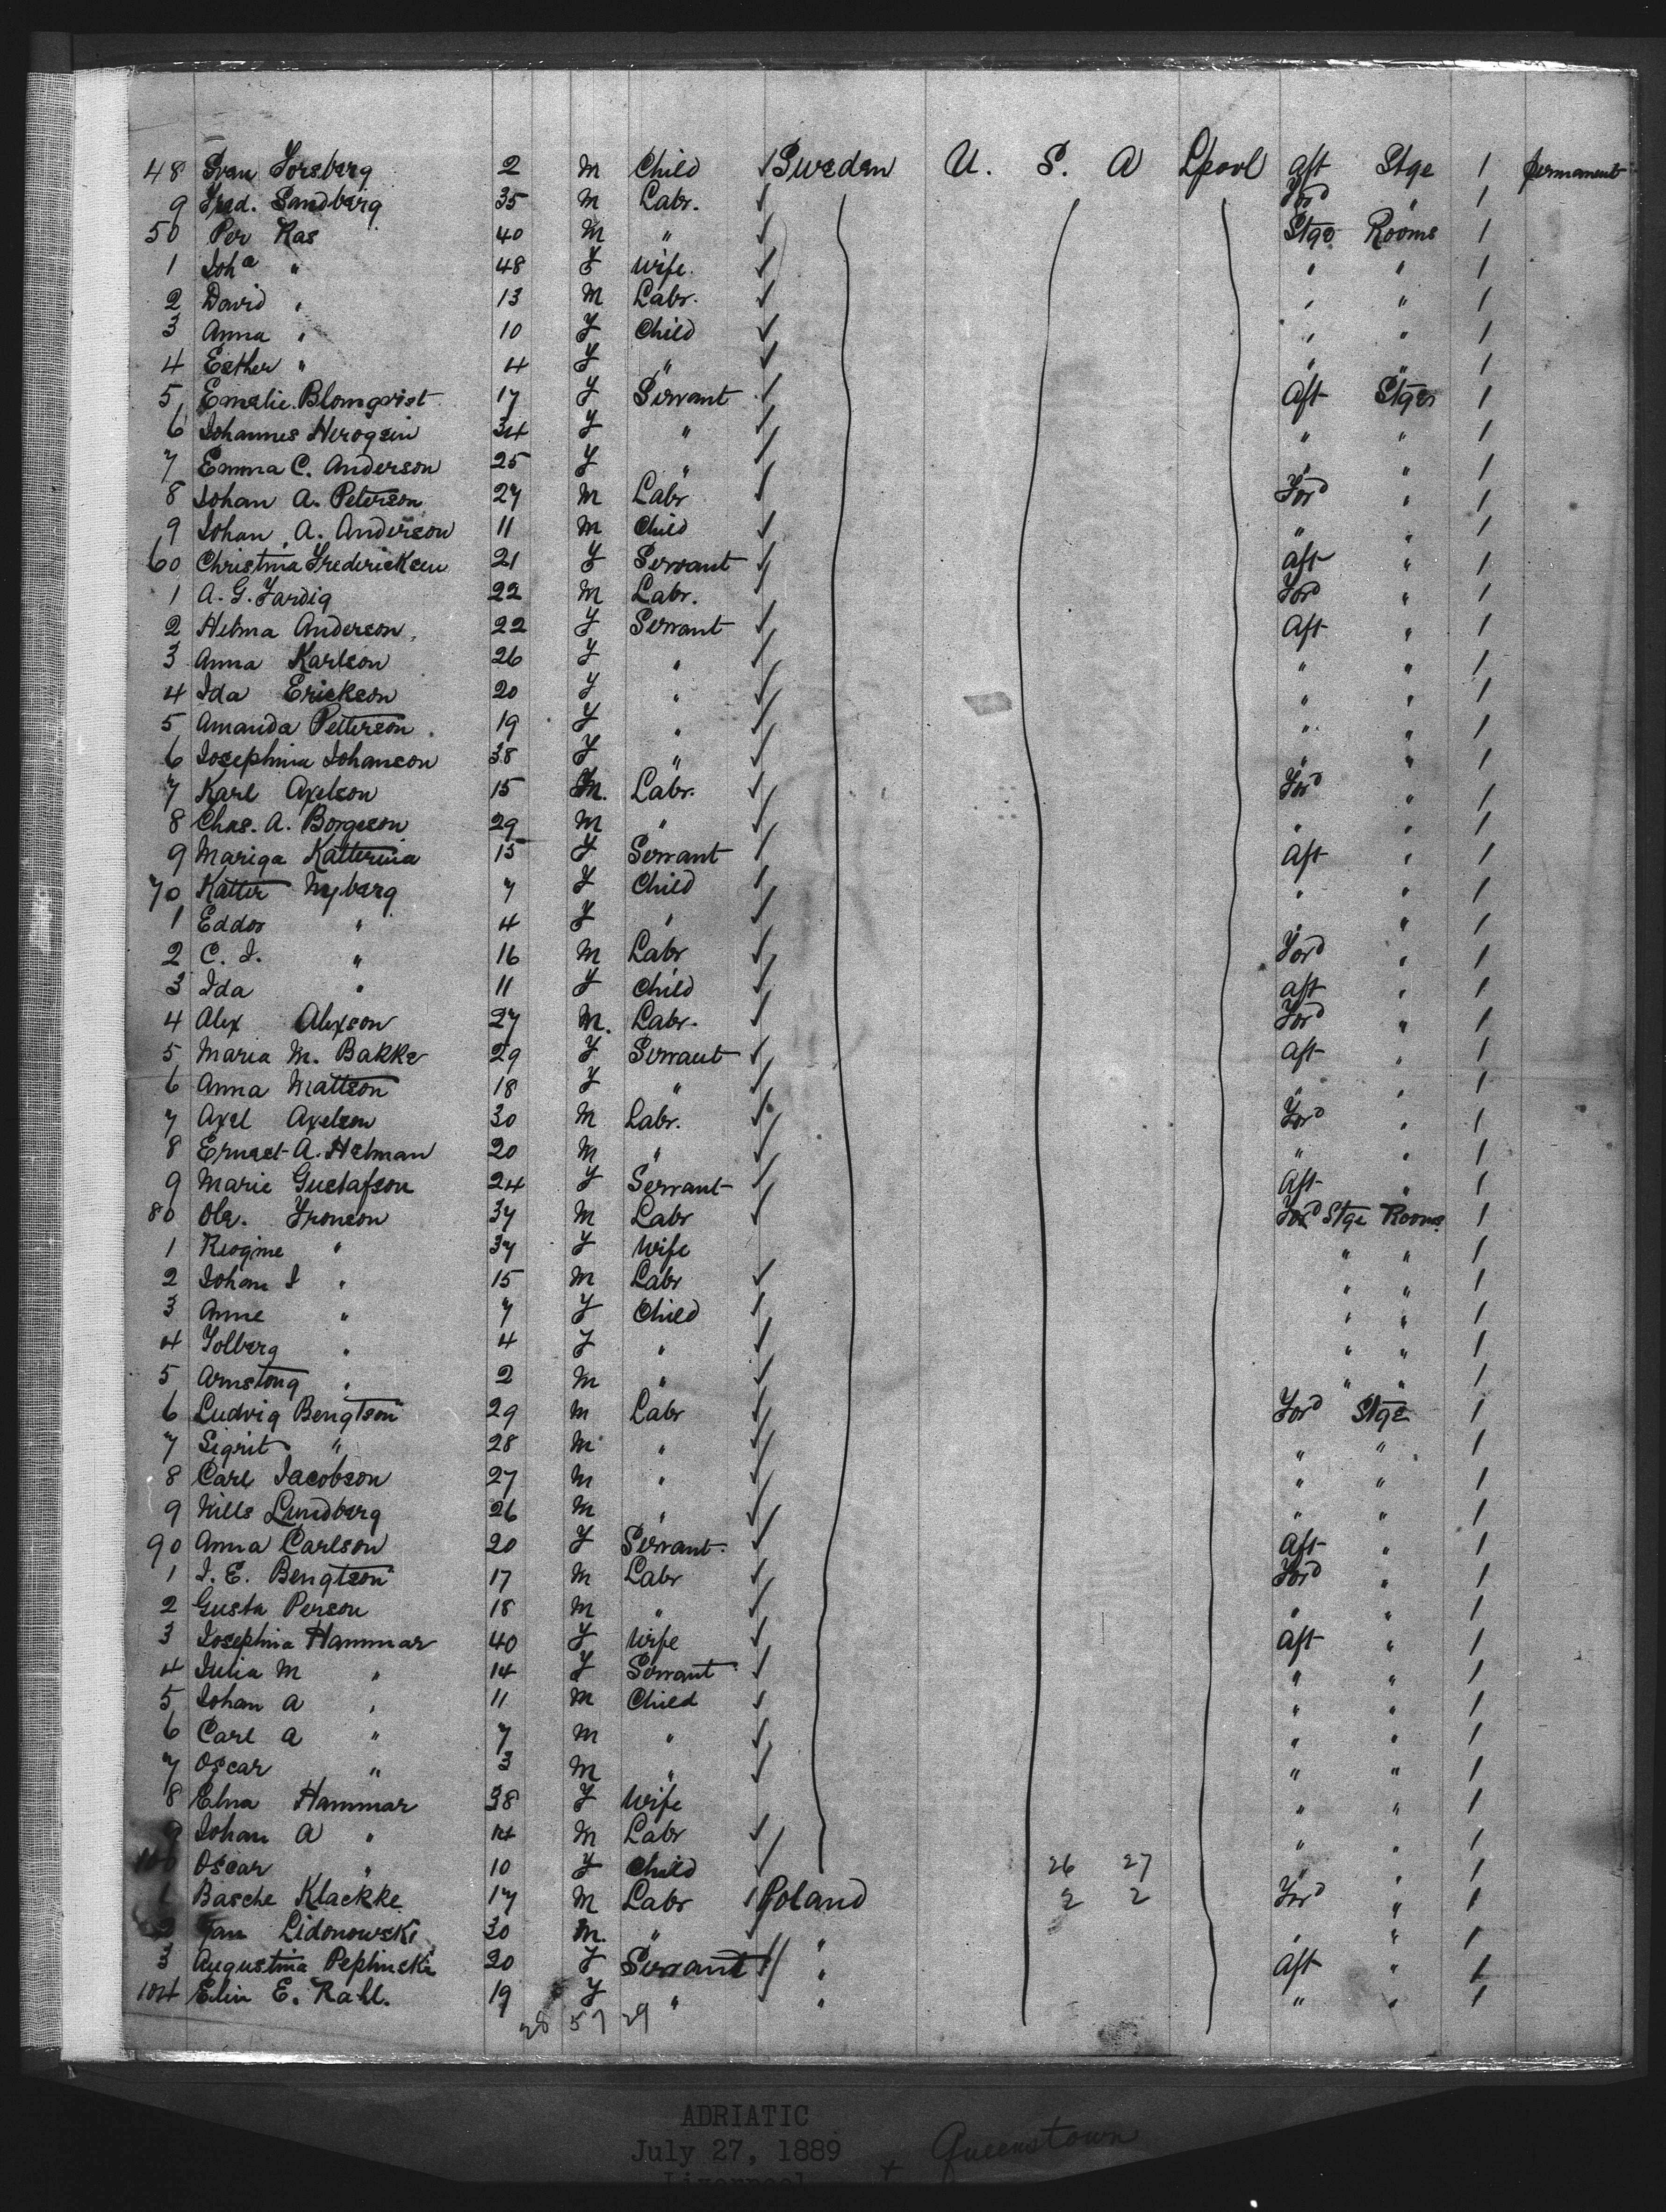 48 Svan Forsberg 2 M Child Sweden U. S. A Lpool aft Stge 1 permanent
9 Fred. Sandberg 35 M Labr. Ford " 1
50 Per Kas 40 M " Stge Rooms 1
1 Joh a " 48 F Wife. " " 1
2 David " 13 M Labr. " " 1
3 Anna " 10 F Child " " 1
4 Esther " 4 F " " " 1
5 Emelie Blomqvist 17 F Servant Aft Stge 1
6 Johannes 34 F " " " 1
7 Emma C. Anderson 25 F " " " 1
8 Johan A. Peterson 27 M Labr Ford " 1
9 Johan A. Anderson 11 M Child " " 1
60 Christina Fredericksen 21 F Servant aft " 1
1 A. G. Fardig 22 M Labr. Ford " 1
2 Helma Anderson 22 F Servant Aft " 1
3 Anna Karlson 26 F " " " 1
4 Ida Erickson 20 F " " " 1
5 Amanda Petterson 19 F " " " 1
6 Josephina Johanson 38 F " " " 1
7 Karl Axelson 15 M. Labr. Ford " 1
8 Chas. A. Borgeson 29 M " " " 1
9 Mariga Katterina 15 F Servant Aft " 1
70 Katter Nyberg 7 F Child " " 1
1 Eddor " 4 F " " " 1
2 C. J. " 16 M Labr Ford " 1
3 Ida " 11 F Child aft " 1
4 Alex Alexson 27 M. Labr. Ford " 1
5 Maria M. Bakke 29 F Servant aft " 1
6 Anna Mattson 18 F " " " 1
7 Axel Axelson 30 M Labr. Ford " 1
8 Ernest A. Helman 20 M " " " 1
9 Marie Gustafson 24 F Servant Aft " 1
80 Ole. Fronson 37 M Labr Ford Stge Rooms 1
1 Reogine " 37 F Wife " " 1
2 Johan J " 15 M Labr " " 1
3 Anne " 7 F Child " " 1
4 Solberg " 4 F " " " 1
5 Armstong " 2 M " " " 1
6 Ludvig Bengtson 29 M Labr Ford Stge 1
7 Sigrit " 28 M " " " 1
8 Carl Jacobson 27 M " " " 1
9 Nills Lundberg 26 M " " " 1
90 Anna Carlson 20 F Servant Aft " 1
1 J. E. Bengtson 17 M Labr Ford " 1
2 Gusta Person 18 M " " " 1
3 Josephina Hammar 40 F Wife aft " 1
4 Julia M " 14 F Servant " " 1
5 Johan A " 11 M Child " " 1
6 Carl A " 7 M " " " 1
7 Oscar " 3 M " " " 1
8 Elna Hammar 38 F Wife " " 1
9 Johan A " 14 M Labr " " 1
100 Oscar " 10 F Child 26 27 " " 1
1 Basche Klackke 17 M Labr Poland 2 2 Ford " 1
2 Jan Lidonowski 30 M. " " " " 1
3 Augustina Peplinski 20 F Servant " Aft " 1
104 Elin E. Rahl. 19 F " " " " 1
28 57 29
ADRIATIC
July 27, 1889
Liverpool + Queenstown